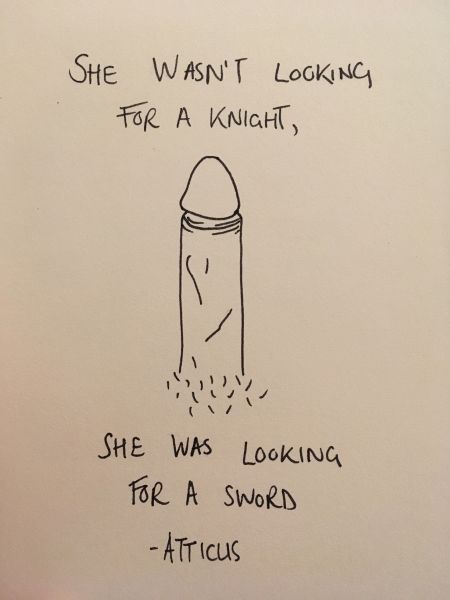 SHE WASN'T LOOKING
FOR A KNIGHT,
SHE WAS LOOKING
FOR A SWORD
-ATTICUS